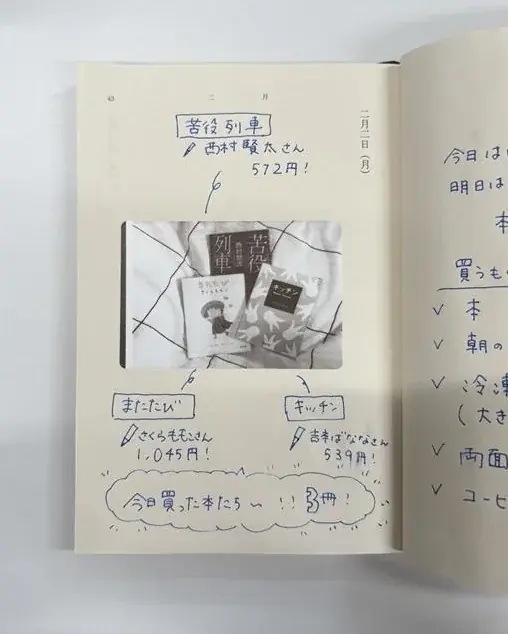 43
二 月
二月二日（月）
苦役列車
西村賢太さん
572円！
苦役
列車
キッチン
またたび
さくらももこさん
1,045円！
キッチン
吉本ばななさん
539円！
今日買った本たち〜！！3冊！
今日は
明日は
本
買うもの
✓ 本
✓ 朝の
✓ 冷凍
（大き
✓ 両面
✓ コーヒ